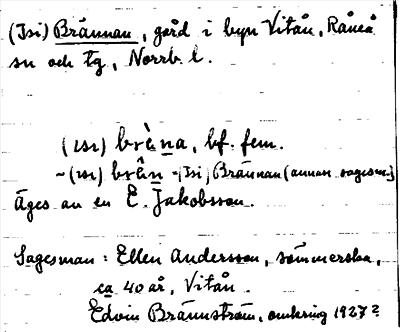 (Isi) Brännan, gård i byn Vitån, Råneå
sn och tg, Norrb. l.
(ısı) brèn̲a, bf. fem.
~(ısı) brên̲ ~(Isi) Brännan (annan sagesm.)
Äges av en E. Jakobsson.
Sagesman: Ellen Andersson, sömmerska,
ca 40 år, Vitån.
Edvin Brännström, omkring 1927?